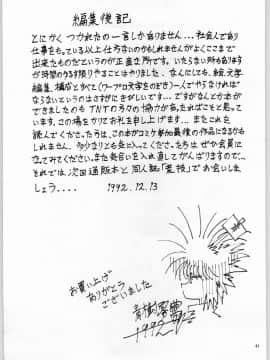 編集後記
とにかくつかれたの一言しかありません...社会人であり
仕事をもっている以上仕方ないのかもしれませんがよくここまで
出来たものだというのが正直な所です。いたらない所もあります
が時間のゆるす限りやることはやりました。なんにしても、絵、文字
編集、構成とすべて(ワープロ文字をのぞき)一人でやらなければ
ならないというのはさすがにきびしいです...ですがなんとか本が
できましたのもTNTの方々の協力があったればこそと思って
います。この場をかりてお礼を申し上げます...またこれを
読んでください。たちは、この本がコミケ参加最後の作品になるかも
しれません。多少なりとも気に入ってくださった方は ぜひ会員に
なってみてください。また発行いを入れ直してがんばりますので...
それでは、次回通販本と同人誌「荒技」でお会いしま
しょう....
1992.12.13
お買い上げ
ありがとう
ございました
1992
41